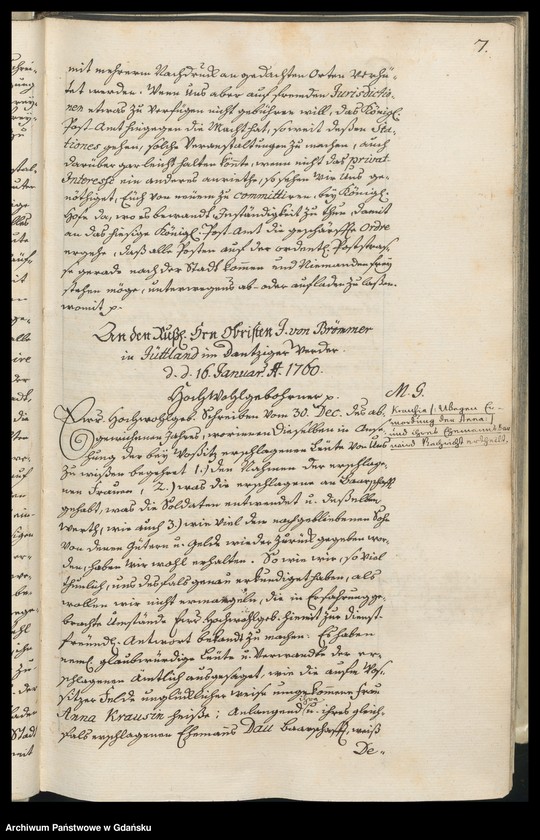 7.
mit mehrerm Nachdruck an gedachten Orten verhü-
tet werden. Wenn Uns aber auf fremden Jurisdictio-
nen etwas zu verfügen nicht gebühren will, das Königl.
Post-Amt hingegen die Macht hat, so weit deßen Sta-
tiones gehen, solche Veranstaltungen zu machen, auch
darüber gar leicht halten könte, wenn nicht das privat
Interesse ein anderes anriethe, so sehen wir Uns ge-
nöthiget, Euch von neuem zu committiren, bey Königl.
Hofe da, wo es bewandt, Inständigkeit zu thun, damit
an das hiesige Königl. Post-Amt die geschärfste Ordre
ergehe, daß alle Posten auf der ordentl. Poststras-
se gerade nach der Stadt kommen und Niemanden frey
stehen möge, unterwegens ab- oder aufladen zu laßen.
womit p.
An den Rußl. Hrn Obristen J. von Brömmer
in Güttland im Dantziger Werder.
d. d. 16 Januar. A. 1760.
Hochwohlgebohrner p.
M. G.
Ewr. Hochwohlgeb. Schreiben vom 30. Dec. des ab-
gewichenen Jahres, worinnen dieselben in Anse-
hung der bey Vossitz erschlagenen Leute von Uns
zu wißen begehret 1.) den Nahmen der erschlage-
nen Frauen, 2.) was die erschlagene an Baarschafft
gehabt, was die Soldaten entwendet u. deßelben
Werth, wie auch 3.) wie viel dem nachgebliebenen Sohn
von denen Gütern u. Gelde wieder zurück gegeben wor-
den, haben wir wohl erhalten. So wie wir, so viel
thunlich, uns desfals genau erkundiget haben, als
wollen wir nicht ermangeln, die in Erfahrung ge-
brachte Umstände Ewr Hochwohlgeb. hiemit zur dienst-
freundl. Antwort bekandt zu machen. Es haben
neml. glaubwürdige Leute u. Verwandte der er-
schlagenen Amtlich ausgesaget, wie die aufm Vos-
sitzer Felde unglücklicher Weise umgekommene Frau
Anna Krausin heiße; Anlangend ihre u. ihres gleich-
fals erschlagenen Ehemans Dau Baarschafft, weiß
De-
wegen Er-
mordung der Anna
und ihres Ehemanns Dau
wird Nachricht ertheilt.